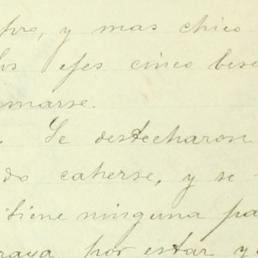 pro, y mas chico
ejes cinco bese
marse.
Se destecharon
do caherse, y se
tiene ninguna pa
raya por estar y